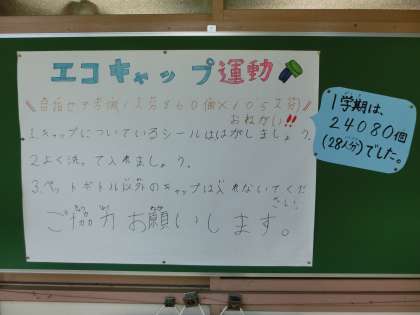 エコキャップ運動
1.キャップについているシールははがしましょう。
おねがい!!
2.よく洗って入れましょう。
3.ペットボトル以外のキャップは入れないでくだ
さい。
ご協力お願いします。
1学期は、
24080個
(28人分)でした。